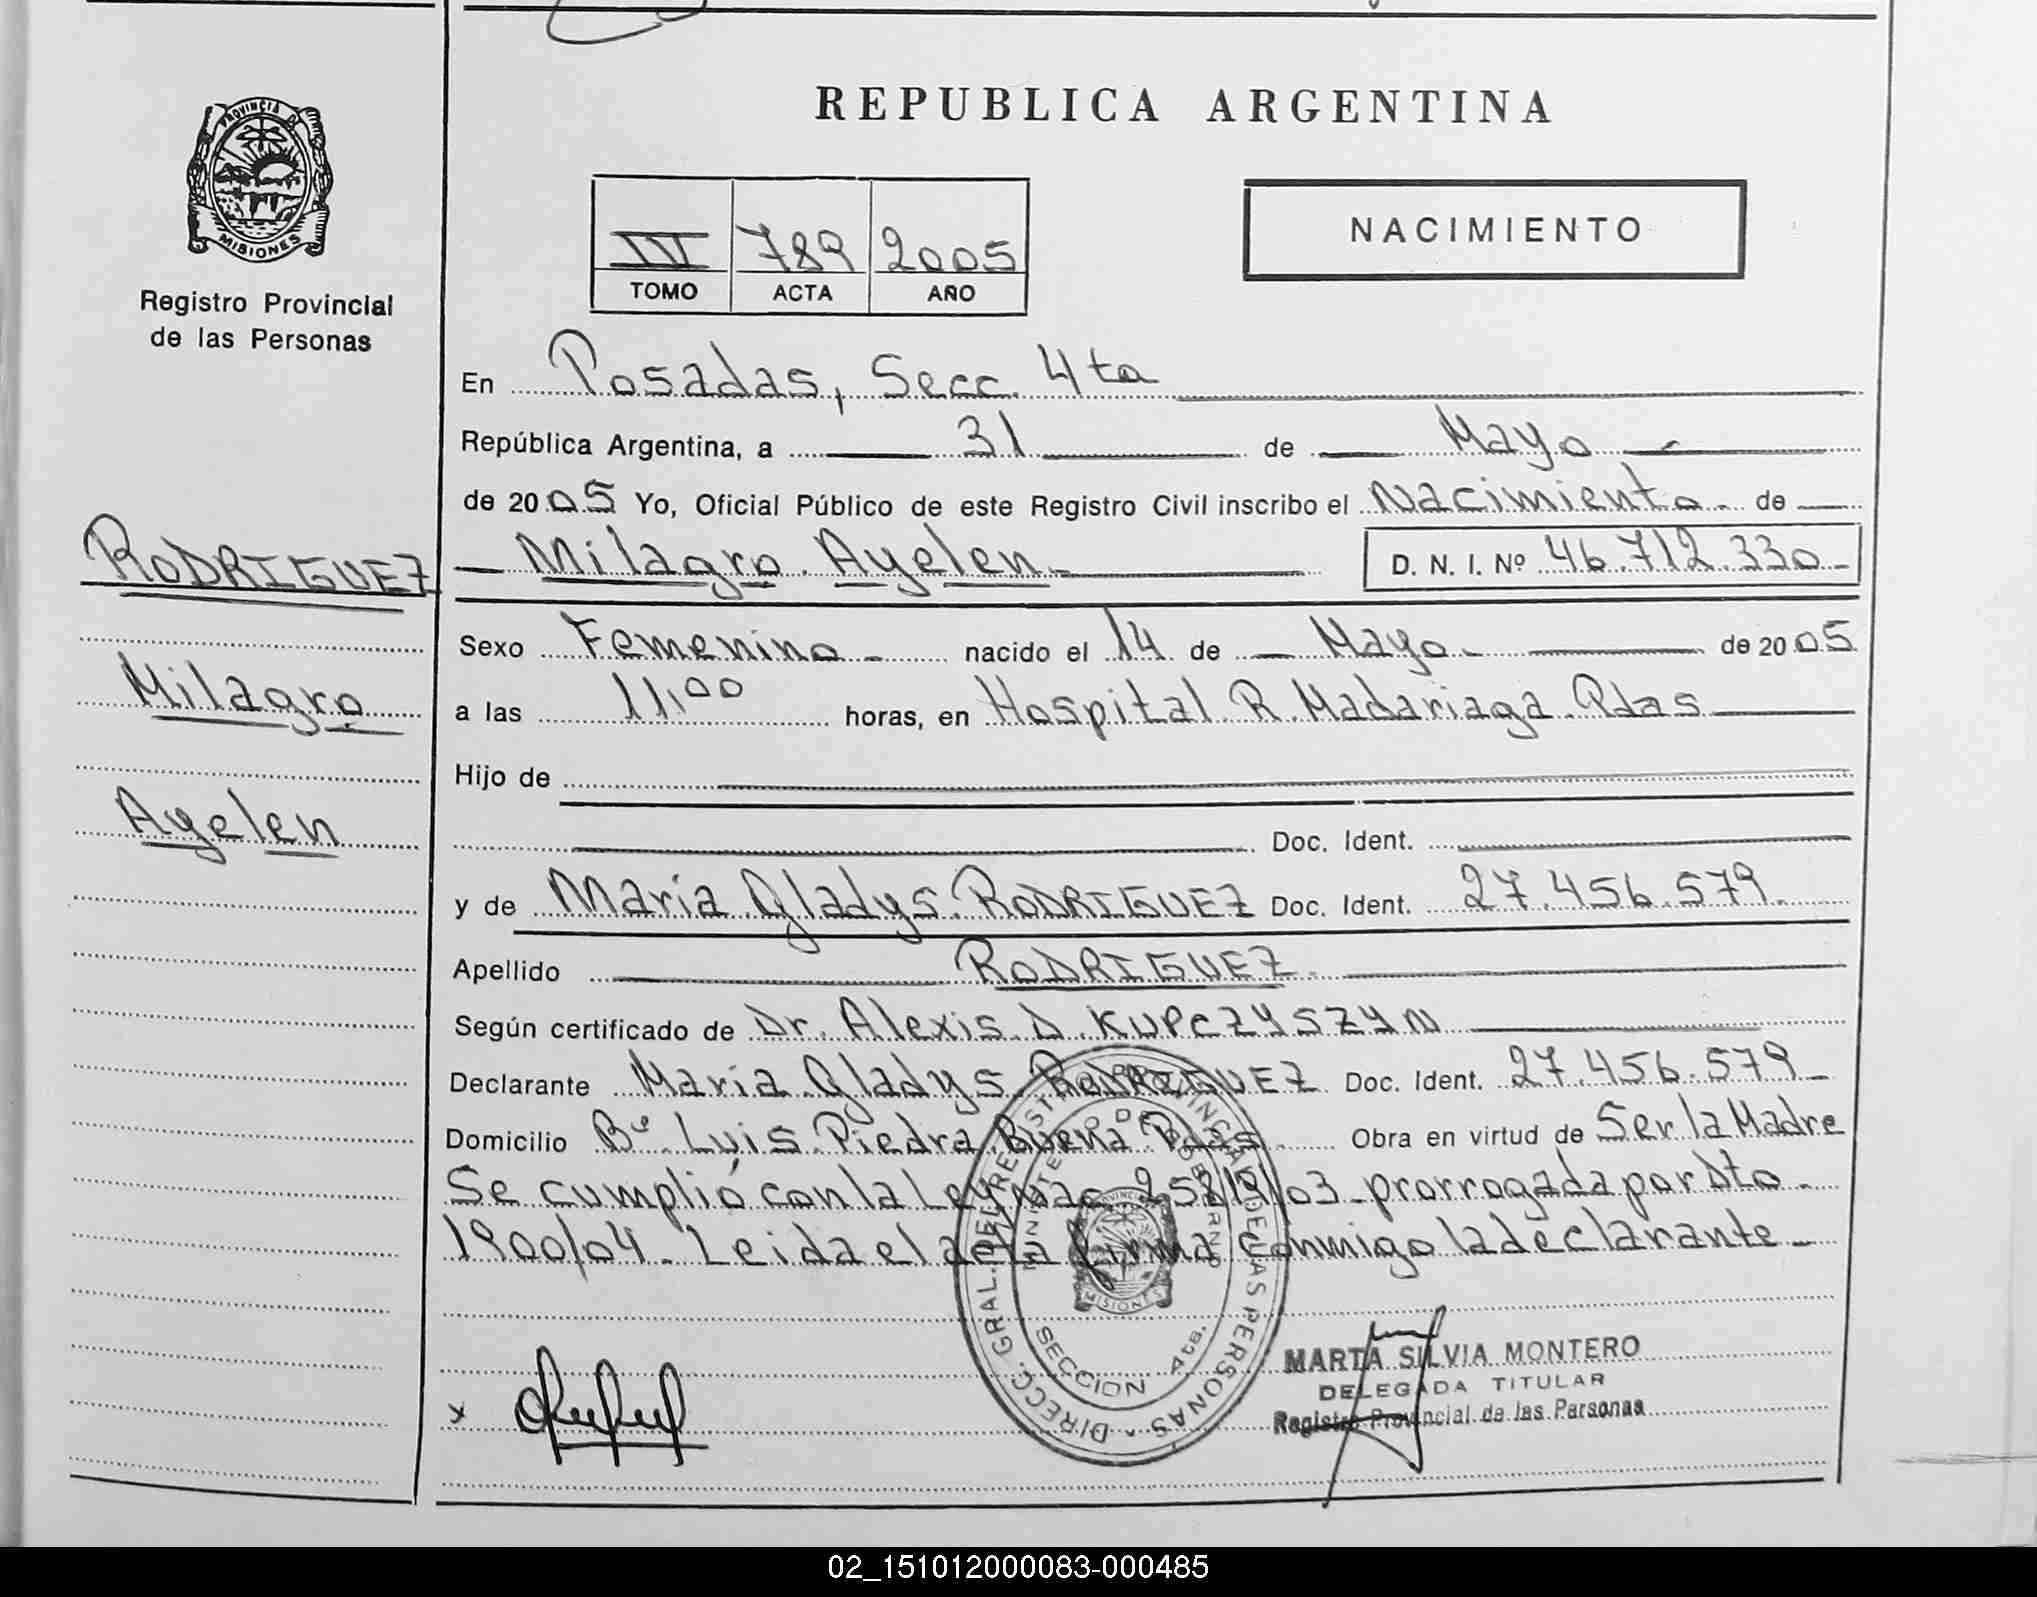 PROVINCIA DE
MISIONES
Registro Provincial
de las Personas
RODRIGUEZ
Milagro
Ayelen
REPUBLICA ARGENTINA
III 789 2005
TOMO ACTA AÑO
NACIMIENTO
En Posadas, Secc. 4ta
República Argentina, a 31 de Mayo
de 2005 Yo, Oficial Público de este Registro Civil inscribo el Nacimiento de
Milagro Ayelen D. N. I. Nº 46.712.330
Sexo Femenino nacido el 14 de Mayo de 2005
a las 11,00 horas, en Hospital R. Madariaga Pdas
Hijo de
Doc. Ident.
y de Maria Gladys RODRIGUEZ Doc. Ident. 27.456.579
Apellido RODRIGUEZ
Según certificado de Dr. Alexis D. KUPCZYSZYN
Declarante Maria Gladys RODRIGUEZ Doc. Ident. 27.456.579
Domicilio Bº Luis Piedra Buena Pdas Obra en virtud de Ser la Madre
Se cumplió con la Ley Nac 25819/03 prorrogada por Dto
1900/04 Leida el acta firma conmigo la declarante
DIRECC. GRAL. DEL REGISTRO PROVINCIAL DE LAS PERSONAS
MINISTERIO DE GOBIERNO
SECCION 4ta.
MISIONES
x
MARTA SILVIA MONTERO
DELEGADA TITULAR
Registro Provincial de las Personas
02_151012000083-000485